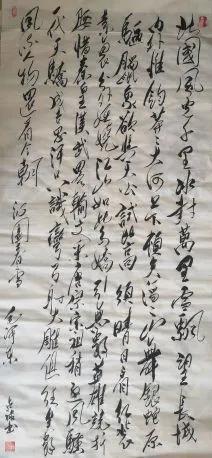 北國風光千里冰封萬里雪飄望長城
内外惟餘莽莽大河上下頓失滔滔山舞銀蛇原
馳蠟象欲與天公試比高須晴日看紅裝
素裹分外妖嬈江山如此多嬌引無數英雄競折
腰惜秦皇漢武略輸文采唐宗宋祖稍遜風騷
一代天驕成吉思汗只識彎弓射大雕俱往矣數
風流人物還看今朝 沁園春雪
毛澤東